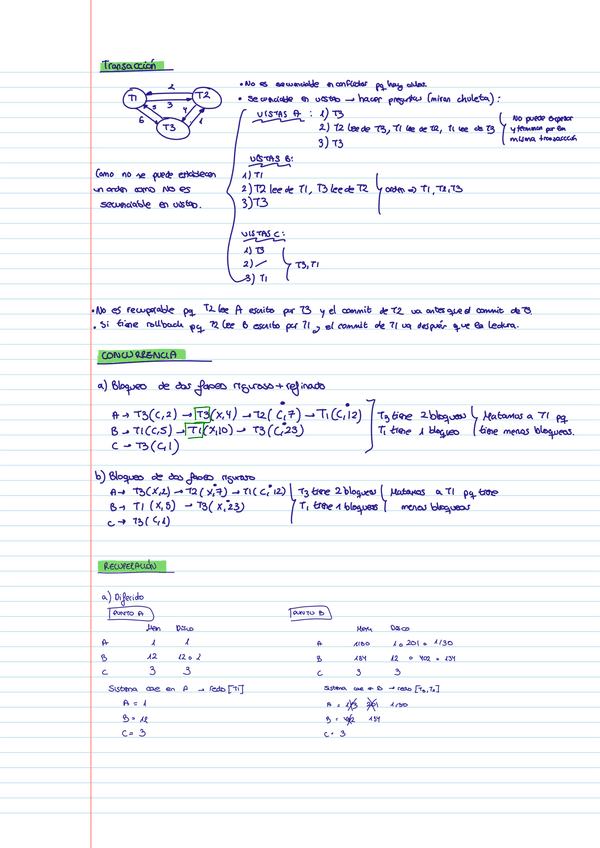 Transacción
T1 2 T2
5 3 4
6 T3 1
• No es secuenciable en conflictos pq hay ciclos.
• Secuenciable en vistas → hacer preguntas (mirar chuleta):
VISTAS A: 1) T3
2) T2 lee de T3, T1 lee de T2, T1 lee de T3
3) T3
No puede empezar
y terminar por la
misma transacción
Como no se puede establecer
un orden como NO es
secuenciable en vistas.
VISTAS B:
1) T1
2) T2 lee de T1, T3 lee de T2
3) T3
orden ⇒ T1, T2, T3
VISTAS C:
1) T3
2) /
3) T1
T3, T1
• No es recuperable pq T2 lee A escrito por T3 y el commit de T2 va antes que el commit de T3.
• Si tiene rollback pq T2 lee B escrito por T1 y el commit de T1 va después que la lectura.
CONCURRENCIA
a) Bloqueo de dos fases riguroso + refinado
A → T3(C,2) → T3(X,4) → T2(C,7) → T1(C,12)
B → T1(C,5) → T1(X,10) → T3(C,23)
C → T3(C,1)
T3 tiene 2 bloqueos
T1 tiene 1 bloqueo
Matamos a T1 pq
tiene menos bloqueos.
b) Bloqueo de dos fases riguroso
A → T3(X,2) → T2(X,7) → T1(C,12)
B → T1(X,5) → T3(X,23)
C → T3(C,1)
T3 tiene 2 bloqueos
T1 tiene 1 bloqueos
Matamos a T1 pq tiene
menos bloqueos
RECUPERACIÓN
a) Diferido
PUNTO A
Mem Disco
A 1 1
B 12 12 o 2
C 3 3
Sistema cae en A → redo [T1]
A = 1
B = 12
C = 3
PUNTO B
Mem Disco
A 1130 1 o 201 o 1130
B 134 12 o 402 o 134
C 3 3
Sistema cae en B → redo [T3, T2]
A = 201 1130
B = 402 134
C = 3